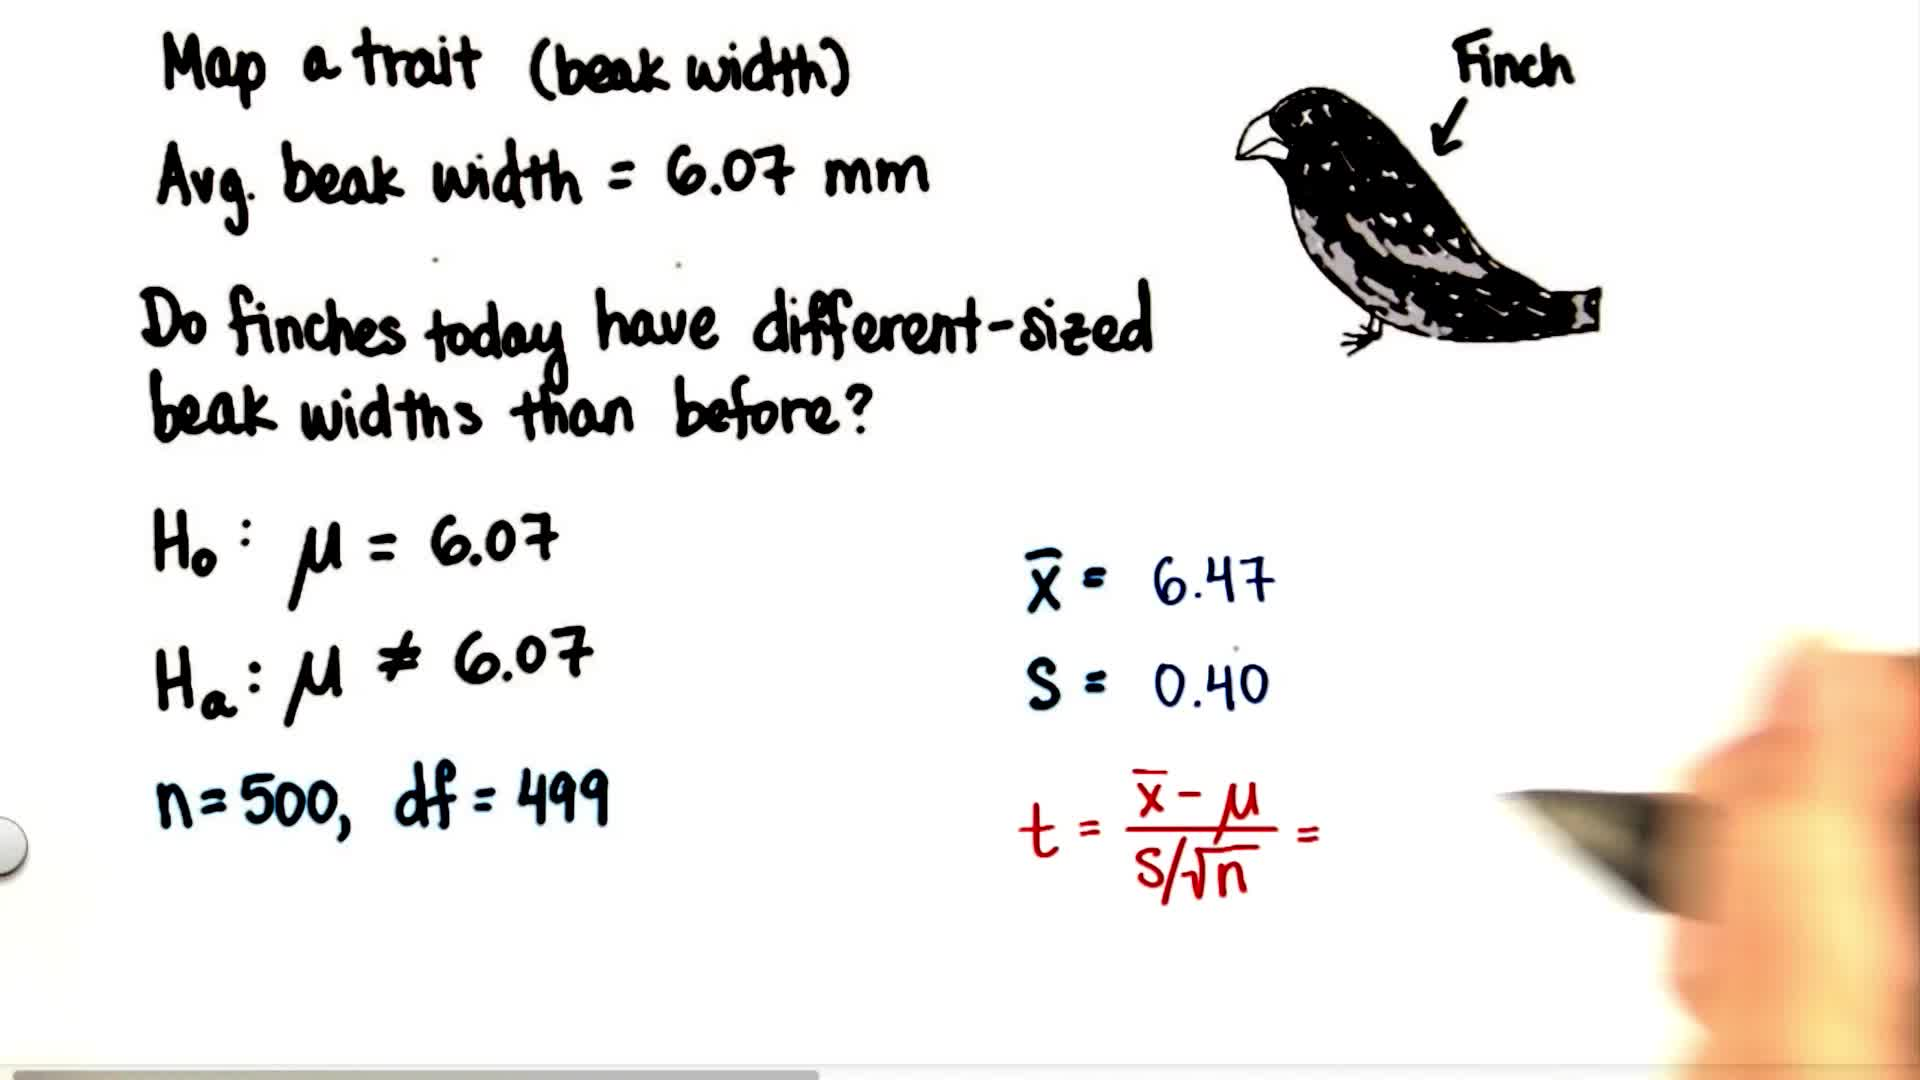 Map a trait (beak width)
Finch
Avg. beak width = 6.07 mm
Do finches today have different-sized
beak widths than before?
H₀: μ = 6.07
Hₐ: μ ≠ 6.07
n=500, df = 499
x̄ = 6.47
S = 0.40
t = (x̄ - μ) / (S/√n) =